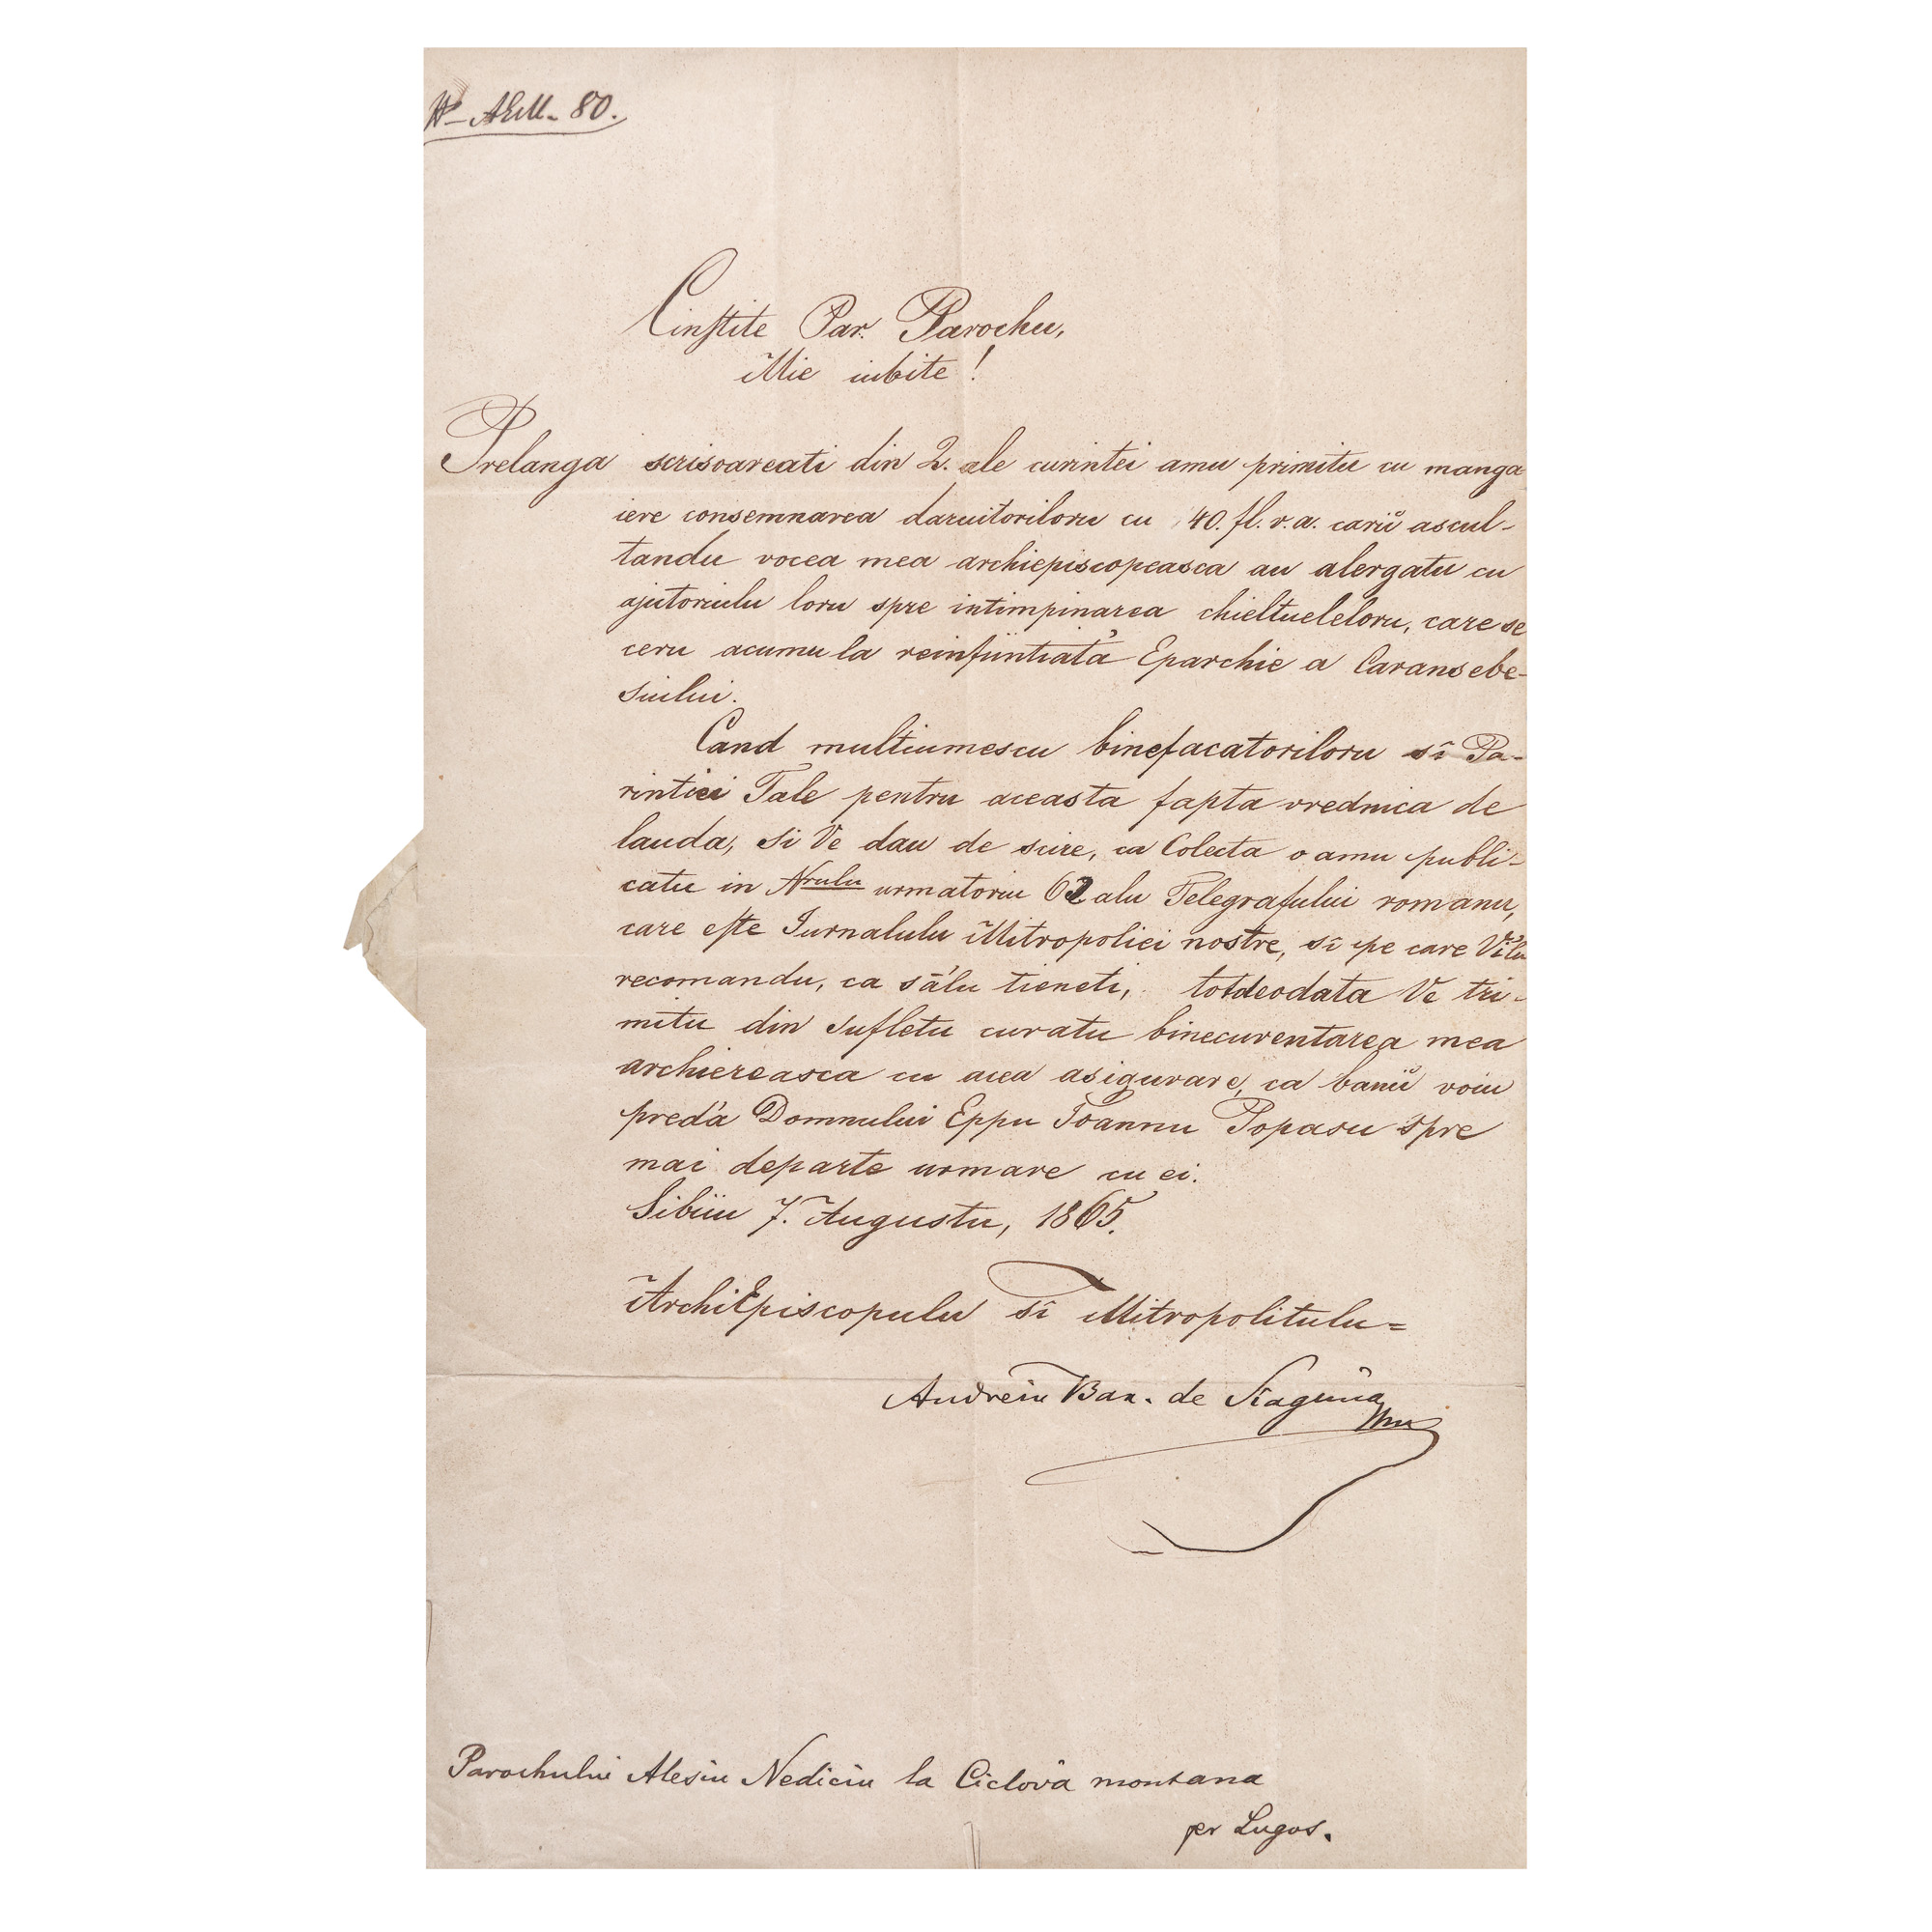 N– AEM. 80.
Cinstite Par. Parochu,
Mie iubite!
Prelanga scrisoareati din 2. ale curintei amu primitu cu manga
iere consemnarea daruitoriloru cu 40. fl. v. a. cariĭ ascul-
tandu vocea mea archiepiscopeasca au alergatu cu
ajutoriulu loru spre intimpinarea chieltueleloru, care se
ceru acumu la reinfiintiatà Eparchie a Caransebe-
siului.
Cand multiumescu binefacatoriloru sî Pa-
rintiei Tale pentru aceasta fapta vrednica de
lauda, si Ve dau de scire, ca Colecta o amu publi-
catu in Nrulu urmatoriu 62 alu Telegrafului romanu,
care este Jurnalulu Mitropoliei nostre, sî pe care Vi'lu
recomandu, ca sà'lu tieneti, totdeodata Ve tri-
mitu din sufletu curatu binecuventarea mea
archiereasca cu acea asigurare, ca baniĭ voiu
predà Domnului Eppu Ioannu Popasu spre
mai departe urmare cu ei.
Sibiiu 7. Augustu, 1865.
ArchiEpiscopulu sî Mitropolitulu=
Andreiu Bar. de Siaguna
Parochului Alesiu Nediciu la Ciclova montana
per Lugos.